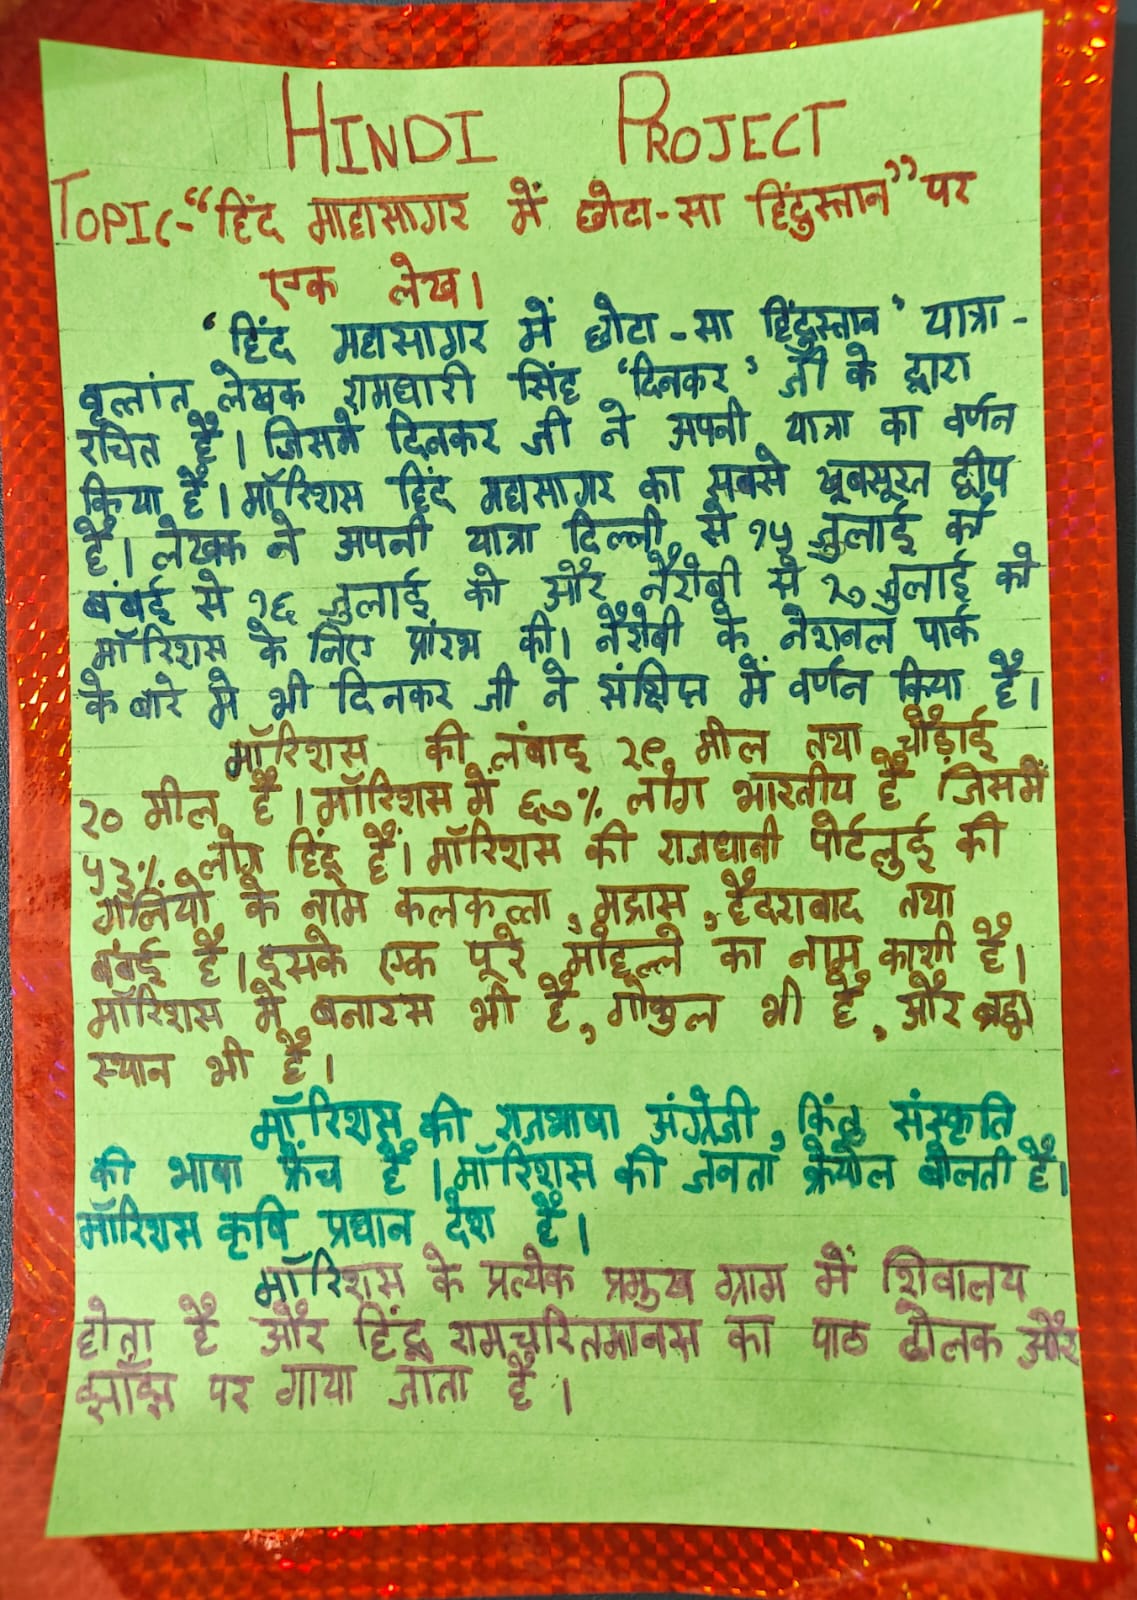 HINDI PROJECT
TOPIC-“हिंद माहासागर में छोटा-सा हिंदुस्तान” पर
एक लेख।
‘हिंद महासागर में छोटा-सा हिंदुस्तान’ यात्रा-
वृत्लांत लेखक रामधारी सिंह ‘दिनकर’ जी के द्वारा
रचित है। जिसमे दिनकर जी ने अपनी यात्रा का वर्णन
किया है। मॉरिशस हिंद महासागर का सबसे खूबसूरत द्वीप
है। लेखक ने अपनी यात्रा दिल्ली से १५ जुलाई को
बंबई से १६ जुलाई को और नैरोबी से १७ जुलाई को
मॉरिशस के लिए प्रांरभ की। नैरोबी के नेशनल पार्क
के बारे मे भी दिनकर जी ने संक्षिप्त में वर्णन किया है।
मॉरिशस की लंबाइ २९ मील तथा चौड़ाई
२० मील है। मॉरिशस में ६७% लोग भारतीय है जिसमें
५३% लोग हिंदू हैं। मॉरिशस की राजधानी पोर्टलुई की
गलियों के नाम कलकत्ला, मद्रास, हैदराबाद तथा
बंबई है। इसके एक पूरे मोहल्ले का नाम काशी है।
मॉरिशस में बनारस भी है, गोकुल भी है, और ब्रह्म
स्थान भी है।
मॉरिशस की राजभाषा अंग्रेजी, किंतु संस्कृति
की भाषा फ्रेंच है। मॉरिशस की जनता क्रेयोल बोलती है।
मॉरिशस कृषि प्रधान देश है।
मॉरिशस के प्रत्येक प्रमुख ग्राम में शिवालय
होता है और हिंदू रामचरितमानस का पाठ ढोलक और
झाँझ पर गाया जाता है।